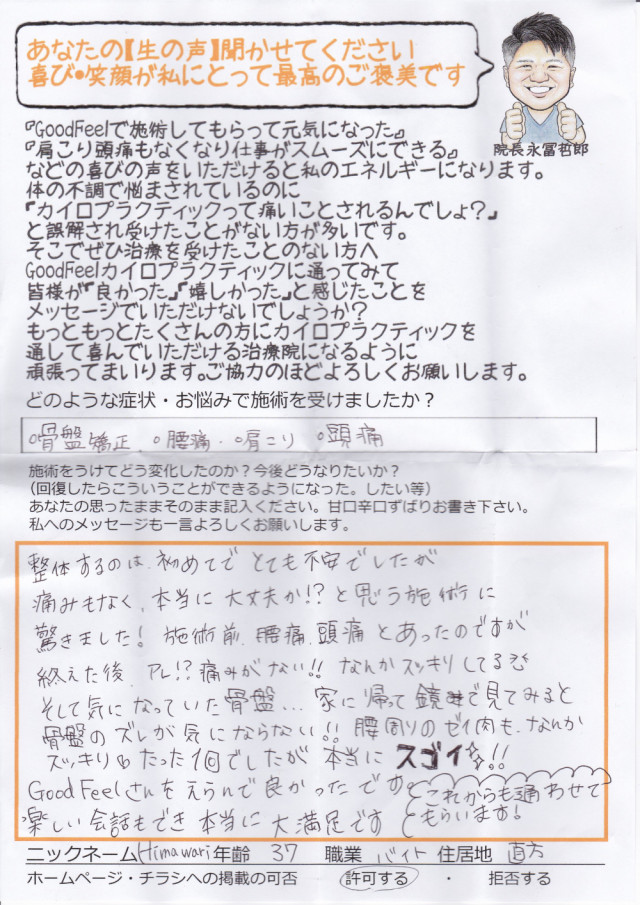 あなたの【生の声】聞かせてください
喜び・笑顔が私にとって最高のご褒美です
院長永冨哲郎
『GoodFeelで施術してもらって元気になった』
『肩こり頭痛もなくなり仕事がスムーズにできる』
などの喜びの声をいただけると私のエネルギーになります。
体の不調で悩まされているのに
「カイロプラクティックって痛いことされるんでしょ?」
と誤解され受けたことがない方が多いです。
そこでぜひ治療を受けたことのない方へ
GoodFeelカイロプラクティックに通ってみて
皆様が「良かった」「嬉しかった」と感じたことを
メッセージでいただけないでしょうか?
もっともっとたくさんの方にカイロプラクティックを
通して喜んでいただける治療院になるように
頑張ってまいります。ご協力のほどよろしくお願いします。
どのような症状・お悩みで施術を受けましたか?
○骨盤矯正 ○腰痛・○肩こり ○頭痛
施術をうけてどう変化したのか?今後どうなりたいか?
(回復したらこういうことができるようになった。したい等)
あなたの思ったままそのまま記入ください。甘口辛口ずばりお書き下さい。
私へのメッセージも一言よろしくお願いします。
整体するのは、初めてで とても不安でしたが
痛みもなく、本当に大丈夫か!?と思う施術に
驚きました! 施術前、腰痛、頭痛とあったのですが
終えた後、アレ!?痛みがない!! なんかスッキリしてる
そして気になっていた骨盤... 家に帰って鏡で見てみると
骨盤のズレが気にならない!! 腰周りのゼイ肉も、なんか
スッキリ たった1回でしたが 本当に スゴイ!!
GoodFeelさんをえらんで良かったです
楽しい会話もでき 本当に 大満足です
これからも通わせて
もらいます!
ニックネーム Himawari 年齢 37 職業 バイト 住居地 直方
ホームページ・チラシへの掲載の可否 許可する ・ 拒否する